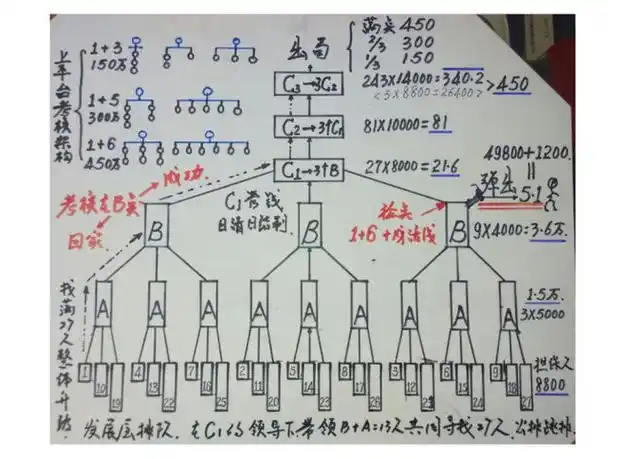 上平台考核架构
1+3
150万
1+5
300万
1+6
450万
出局
满矣 450
2/3 300
1/3 150
C3→3C2
243×14000=340.2
<3×8800=26400>
>450
C2→3个C1
81×10000=81
C1→3个B
27×8000=21.6
49800+1200.
=
5.1
考核在B实
成功
回家
C1带线
1+6+
9×4000=3.6万.
B
B
B
找满27人整体升
A
A
A
A
A
A
A
A
A
1.5万.
3×5000
担保人
8800
1
10
19
4
13
22
7
16
25
2
11
20
5
14
23
8
17
26
3
12
21
6
15
24
9
18
27
发展层排队. 在C1的领导下.带领B+A=13人共同寻找27人.公排跳排.